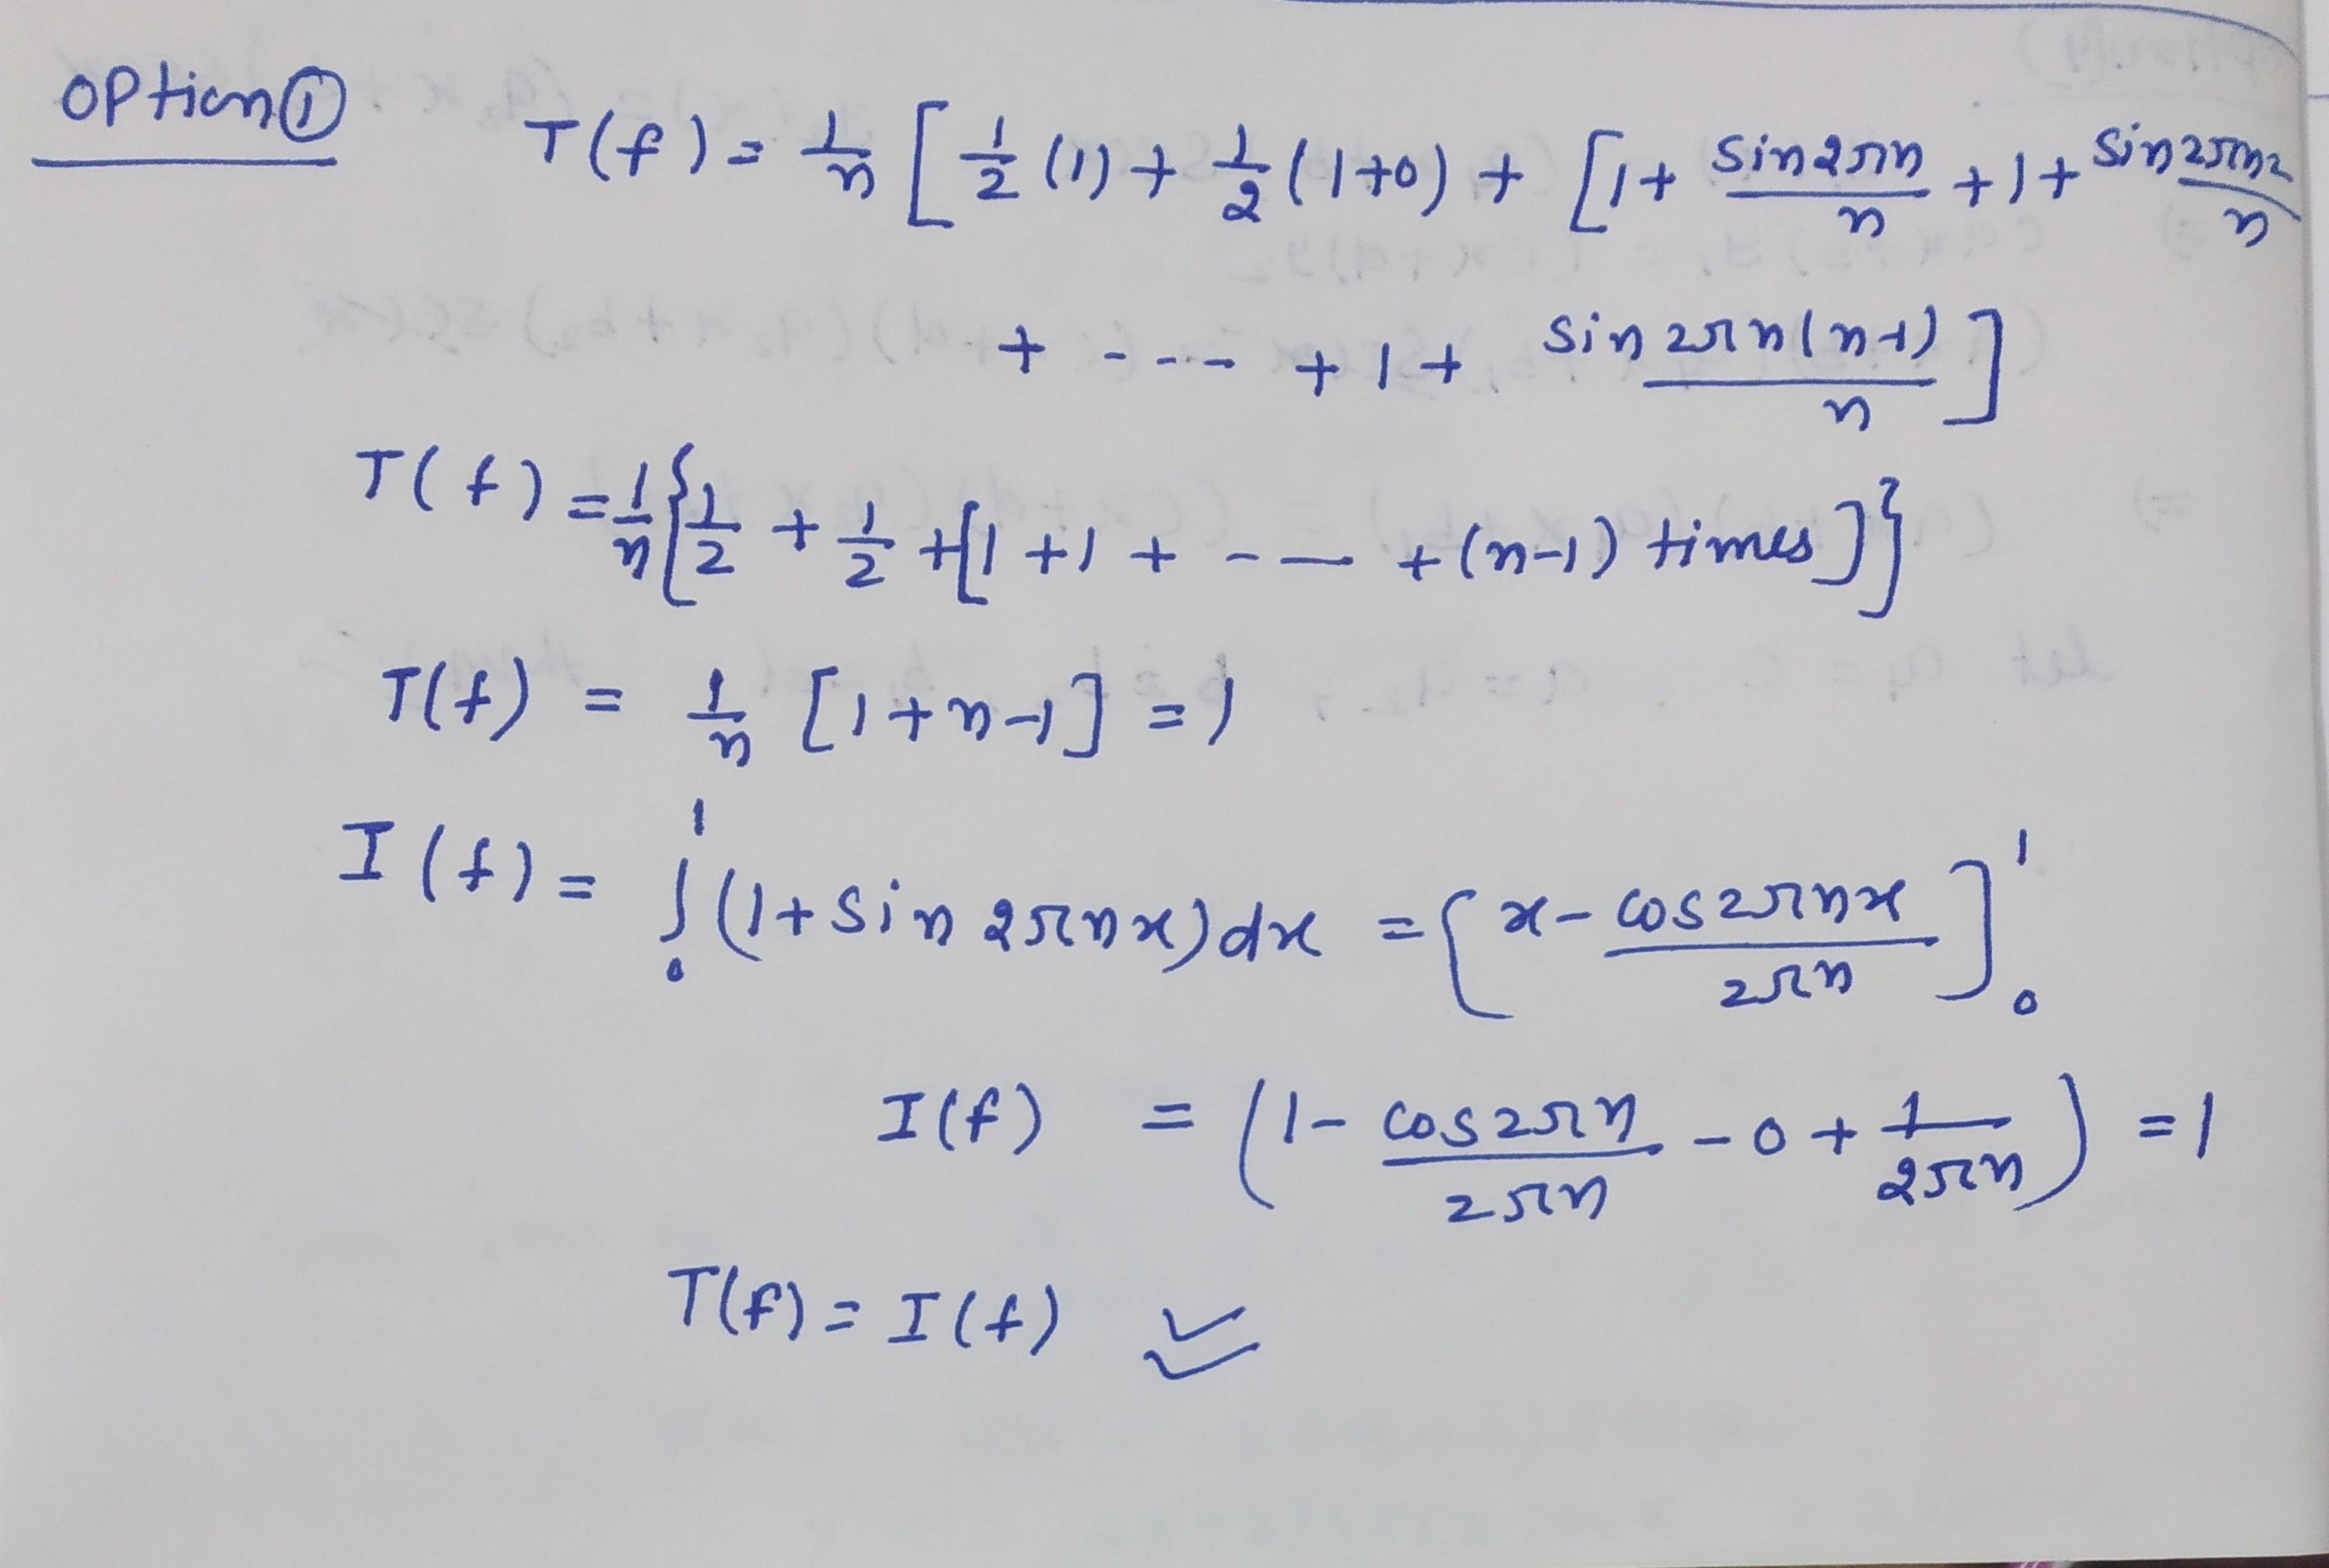 Option ①
T(f) = 1/n [ 1/2 (1) + 1/2 (1+0) + [ 1 + sin2πn/n + 1 + sin2πn2/n
+ ---- + 1 + sin2πn(n-1)/n ]
T(f) = 1/n { 1/2 + 1/2 + [ 1 + 1 + - — + (n-1) times ] }
T(f) = 1/n [ 1 + n - 1 ] = 1
I(f) = ∫₀¹ (1 + sin 2πnx) dx = [ x - cos2πnx/2πn ]₀¹
I(f) = ( 1 - cos2πn/2πn - 0 + 1/2πn ) = 1
T(f) = I(f) ✓